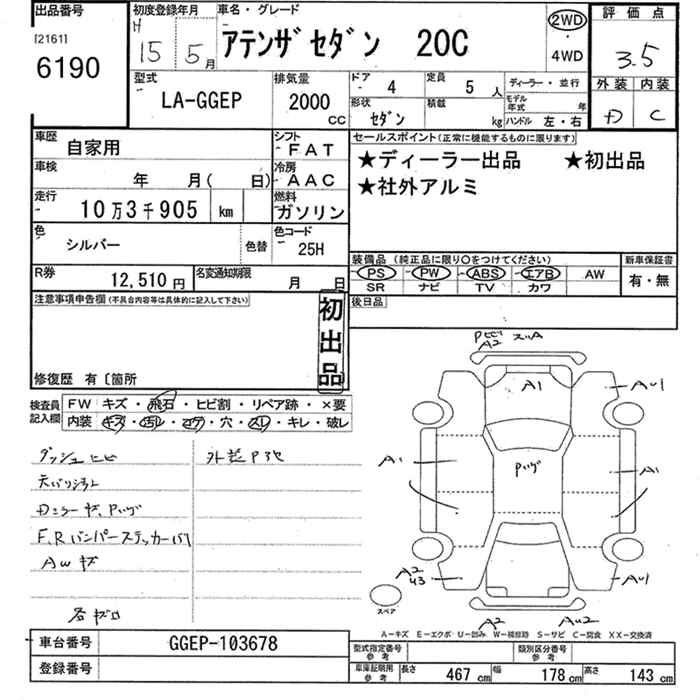 出品番号 初度登録年月 車名・グレード 2WD 評価点
[2161] H
6190 15 5月 アテンザセダン 20C ・ 4WD 3.5
型式 排気量 ドア 4 定員 5人 ディーラー・並行 外装 内装
LA-GGEP 2000 CC 形状 セダン 積載 kg モデル年式 年 ハンドル 左・右 D C
車歴 自家用 シフト FAT セールスポイント(正常に機能するものに限ります)
車検 年 月( 日) 冷房 AAC ★ディーラー出品 ★初出品
走行 10万3千905 km 燃料 ガソリン ★社外アルミ
色 シルバー 色替 色コード 25H 装備品 (純正品に限り○をつけてください) 新車保証書
R券 12,510円 名変通知期限 月 日 PS PW ABS エアB AW 有・無
SR ナビ TV カワ
注意事項申告欄(不具合内容等は具体的に記入して下さい) 初出品 後日品
修復歴 有〔箇所
検査員記入欄 FW キズ・飛石・ヒビ割・リペア跡・×要
内装 キズ・汚レ・コゲ・穴・スレ・キレ・破レ
ダッシュヒビ
F,Rバンパーステッカー
AWキズ
各キズ
A2
A1
AU1
A1
A1
A2
U3
AU1
スペア
A2
AU2
A-キズ E-エクボ U-凹み W-補修跡 S-サビ C-腐食 XX-交換済
車台番号 GGEP-103678 型式指定番号 参考 類別区分番号 参考
登録番号 車庫証明用 参考 長さ 467cm 幅 178cm 高さ 143cm